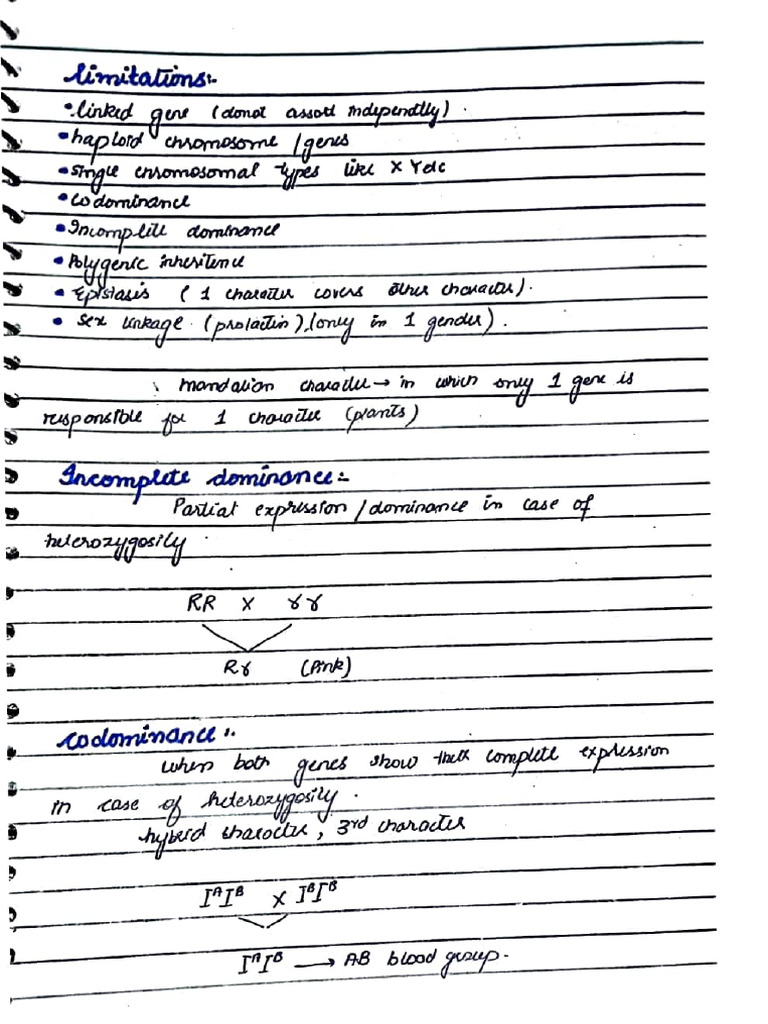 limitations:-
• linked gene (donot assort independtly).
• haploid chromosome /genes
• single chromosomal types like X Y etc
• codominance
• Incomplete dominance
• Polygenic inheritence
• Epistasis (1 character covers other character).
• Sex linkage (prolactin), (only in 1 gender).
character → in which only 1 gene is
responsible for 1 character (plants)
Incomplete dominance:-
Partial expression/dominance in case of
heterozygosity.
RR X rr
Rr (Pink)
codominance:-
when both genes show their complete expression
in case of heterozygosity.
hybrid character, 3rd character
IᴬIᴮ X IᴮIᴮ
IᴬIᴮ → AB blood group.